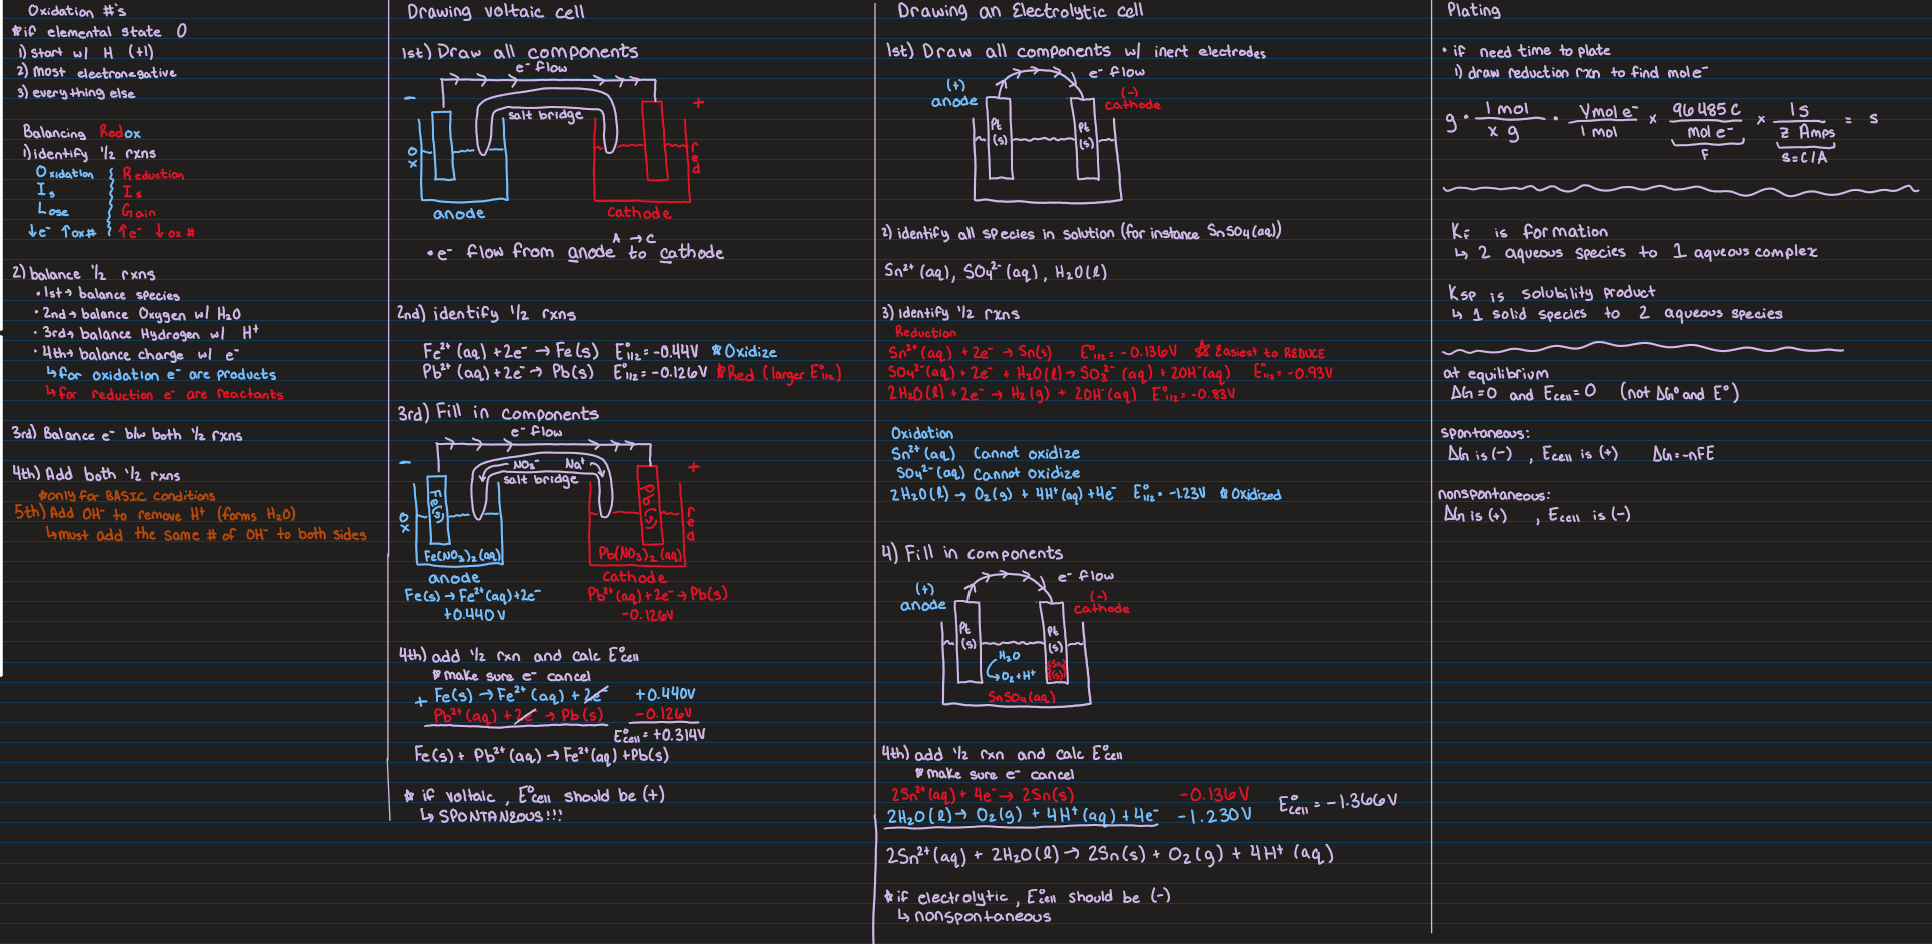 Oxidation #'s
*if elemental state 0
1) start w/ H (+1)
2) most electronegative
3) everything else
Balancing Redox
1) identify ½ rxns
Oxidation Reduction
Is Is
Lose Gain
↓e⁻ ↑ox# ↑e⁻ ↓ox#
2) balance ½ rxns
• 1st → balance species
• 2nd → balance Oxygen w/ H₂O
• 3rd → balance Hydrogen w/ H⁺
• 4th → balance charge w/ e⁻
↳ for oxidation e⁻ are products
↳ for reduction e⁻ are reactants
3rd) Balance e⁻ b/w both ½ rxns
4th) Add both ½ rxns
*only for BASIC conditions
5th) Add OH⁻ to remove H⁺ (forms H₂O)
↳ must add the same # of OH⁻ to both sides
Drawing voltaic cell
1st) Draw all components
e⁻ flow
- +
salt bridge
ox red
anode cathode
A → C
• e⁻ flow from anode to cathode
2nd) identify ½ rxns
Fe²⁺(aq) + 2e⁻ → Fe(s) E°₁/₂ = -0.44V *Oxidize
Pb²⁺(aq) + 2e⁻ → Pb(s) E°₁/₂ = -0.126V *Red (larger E°₁/₂)
3rd) Fill in components
e⁻ flow
- +
NO₃⁻ Na⁺
salt bridge
ox Fe(s) Pb(s) red
Fe(NO₃)₂(aq) Pb(NO₃)₂(aq)
anode cathode
Fe(s) → Fe²⁺(aq) + 2e⁻ Pb²⁺(aq) + 2e⁻ → Pb(s)
+0.440V -0.126V
4th) add ½ rxn and calc E°cell
*make sure e⁻ cancel
+ Fe(s) → Fe²⁺(aq) + 2e⁻ +0.440V
Pb²⁺(aq) + 2e⁻ → Pb(s) -0.126V
E°cell = +0.314V
Fe(s) + Pb²⁺(aq) → Fe²⁺(aq) + Pb(s)
* if voltaic, E°cell should be (+)
↳ SPONTANEOUS!!!
Drawing an Electrolytic cell
1st) Draw all components w/ inert electrodes
e⁻ flow
(+) (-)
anode cathode
Pt (s) Pt (s)
2) identify all species in solution (for instance SnSO₄(aq))
Sn²⁺(aq), SO₄²⁻(aq), H₂O(l)
3) identify ½ rxns
Reduction
Sn²⁺(aq) + 2e⁻ → Sn(s) E°₁/₂ = -0.136V *Easiest to REDUCE
SO₄²⁻(aq) + 2e⁻ + H₂O(l) → SO₃²⁻(aq) + 2OH⁻(aq) E°₁/₂ = -0.93V
2H₂O(l) + 2e⁻ → H₂(g) + 2OH⁻(aq) E°₁/₂ = -0.83V
Oxidation
Sn²⁺(aq) Cannot oxidize
SO₄²⁻(aq) Cannot oxidize
2H₂O(l) → O₂(g) + 4H⁺(aq) + 4e⁻ E°₁/₂ = -1.23V *Oxidized
4) Fill in components
e⁻ flow
(+) (-)
anode cathode
Pt (s) Pt (s)
H₂O
→ O₂ + H⁺
Sn (s)
SnSO₄(aq)
4th) add ½ rxn and calc E°cell
*make sure e⁻ cancel
2Sn²⁺(aq) + 4e⁻ → 2Sn(s) -0.136V
E°cell = -1.366V
2H₂O(l) → O₂(g) + 4H⁺(aq) + 4e⁻ -1.230V
2Sn²⁺(aq) + 2H₂O(l) → 2Sn(s) + O₂(g) + 4H⁺(aq)
*if electrolytic, E°cell should be (-)
↳ nonspontaneous
Plating
• if need time to plate
1) draw reduction rxn to find mol e⁻
g · 1 mol / x g · y mol e⁻ / 1 mol × 96485 C / mol e⁻ × 1s / z Amps = s
F s = C/A
Kf is formation
↳ 2 aqueous species to 1 aqueous complex
Ksp is solubility product
↳ 1 solid species to 2 aqueous species
at equilibrium
ΔG = 0 and Ecell = 0 (not ΔG° and E°)
spontaneous:
ΔG is (-), Ecell is (+) ΔG = -nFE
nonspontaneous:
ΔG is (+), Ecell is (-)